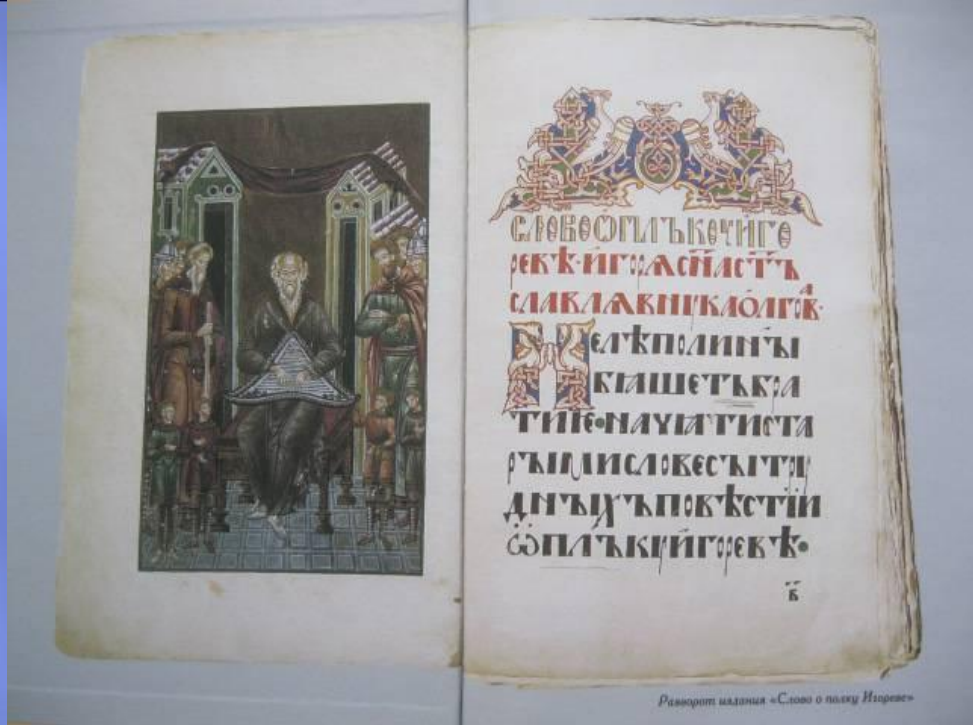 СЛОВООПЛЪКꙊИГО
РЕВѢ·ИГОРѦСН҃АСТ҃Ъ
СЛАВЛѦВНꙊКАОЛГОВ·
НЕЛѢПОЛИНЫ
БІАШЕТЪБРА
ТИѤ•НАЧꙖТИСТА
РЫМИСЛОВЕСЫТРꙊ
ДНЫХЪПОВѢСТІИ
ѾПЛЪКꙊИГОРЕВѢ•
в҃
Разворот издания «Слово о полку Игореве»